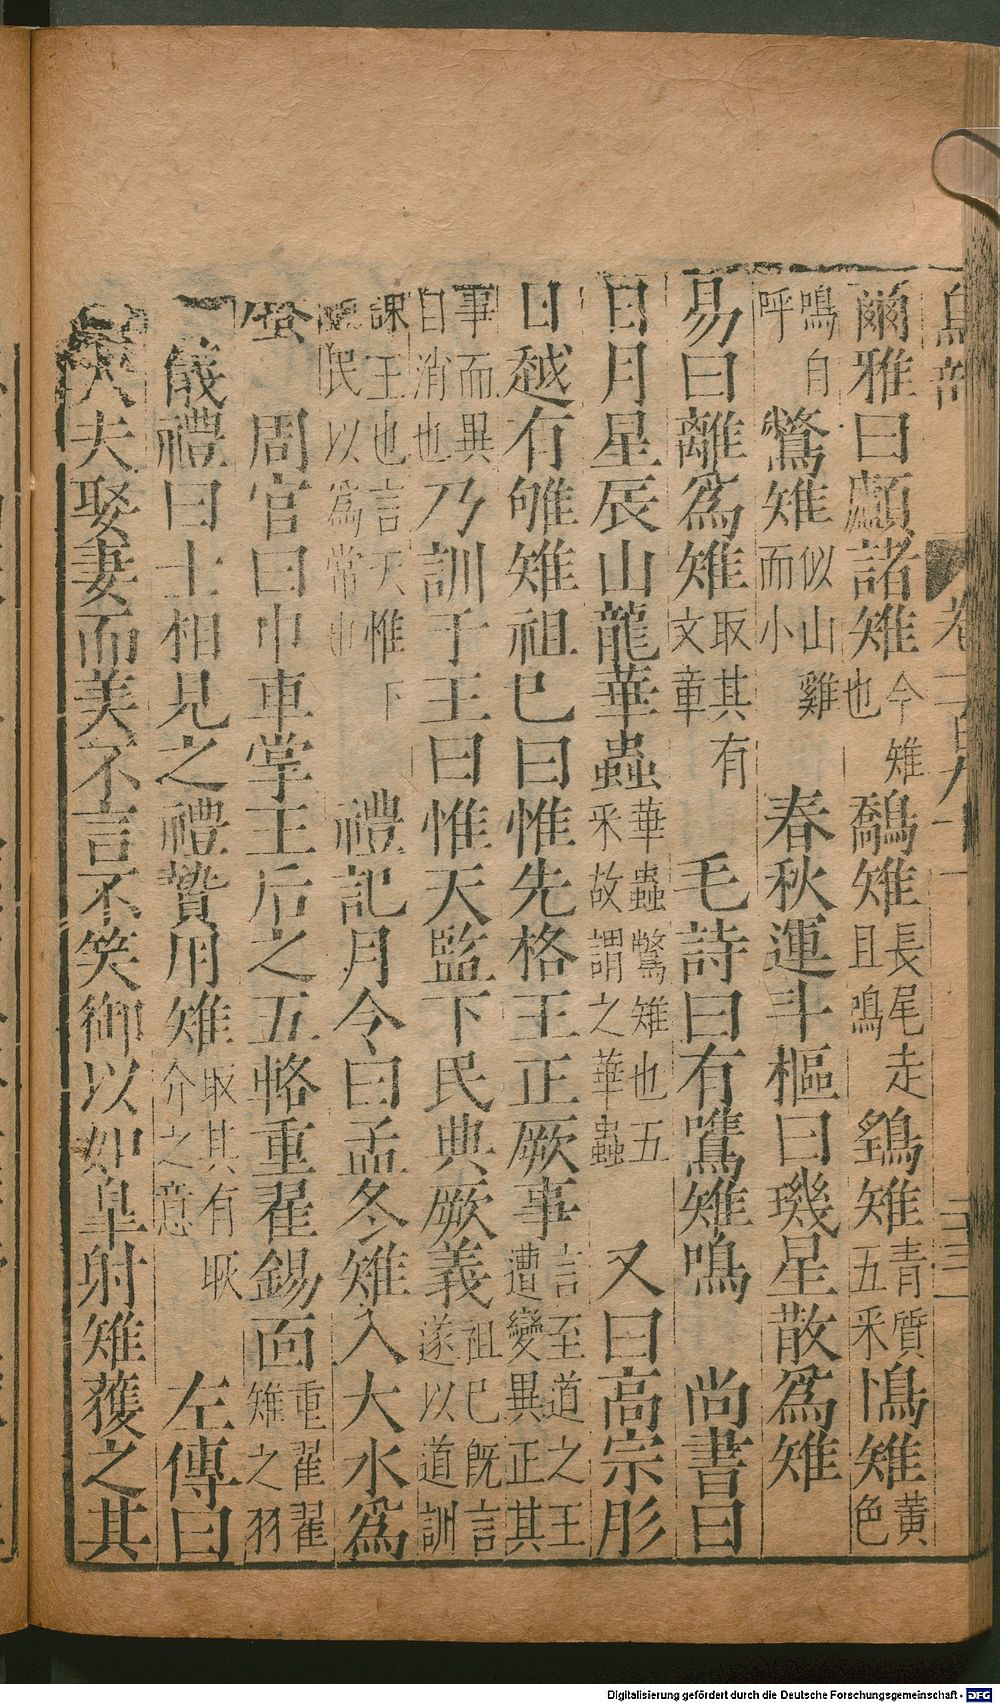 鳥部 卷一百八十 三
爾雅曰鸕諸雉今雉也 鷮雉長尾走且鳴 鷂雉青質五采 鳪雉黃色
鳴自呼 鷩雉似山雞而小 春秋運斗樞曰璣星散爲雉
易曰離爲雉取其有文章 毛詩曰有鷕雉鳴 尚書曰
日月星辰山龍華蟲華蟲鷩雉也五采故謂之華蟲 又曰高宗肜
日越有雊雉祖已曰惟先格王正厥事言至道之王遭變異正其
事而異自消也乃訓于王曰惟天監下民典厥義祖已旣言遂以道訓
諫王也言天惟下民以爲常也 禮記月令曰孟冬雉入大水爲
蜃 周官曰巾車掌王后之五輅重翟錫面重翟翟雉之羽
儀禮曰士相見之禮贄用雉取其有耿介之意 左傳曰
大夫娶妻而美不言不笑御以如皐射雉獲之其
Digitalisierung gefördert durch die Deutsche Forschungsgemeinschaft - DFG